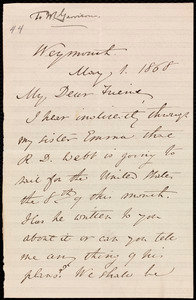 To W L Garrison.
44
Weymouth
May, 1. 1868
My Dear Friend,
I hear indirectly through
my sister Emma that
R. D. Webb is going to
sail for the United States
the 8th of this month.
Has he written to you
about it or can you tell
me any thing of his
plans? We shall be